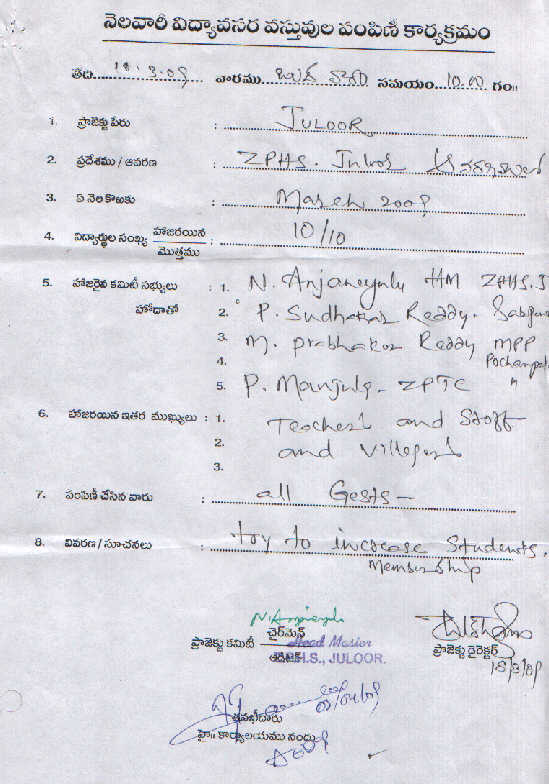 నెలవారి విద్యావసర వస్తువుల పంపిణీ కార్యక్రమం
తేది... 18.3.09 ... వారము... బుధ వారం సమయం... 10.00 గం॥
1. ప్రాజెక్టు పేరు : JULOOR
2. ప్రదేశము / ఆవరణ : ZPHS. Juloor
3. ఏ నెల కొఱకు : March 2009
4. విద్యార్థుల సంఖ్య హాజరయిన / మొత్తము : 10/10
5. హాజరైన కమిటీ సభ్యులు : 1. N. Anjaneyulu HM ZPHS. J
హోదాతో 2. P. Sudhakar Reddy.
3. M. prabhakar Reddy MPP
4. Pochampall
5. P. Manjula - ZPTC
6. హాజరయిన ఇతర ముఖ్యులు : 1. Teachers and Staff
2. and Villegers
3.
7. పంపిణీ చేసిన వారు : all Gests -
8. వివరణ / సూచనలు : try to increase Students.
Membership
N. Anjaneyulu
ప్రాజెక్టు కమిటీ చైర్‌మెన్
Head Master
Z.P.H.S., JULOOR.
ప్రాజెక్టు డైరెక్టర్
18/3/09
హై॥ కార్యాలయము నందు